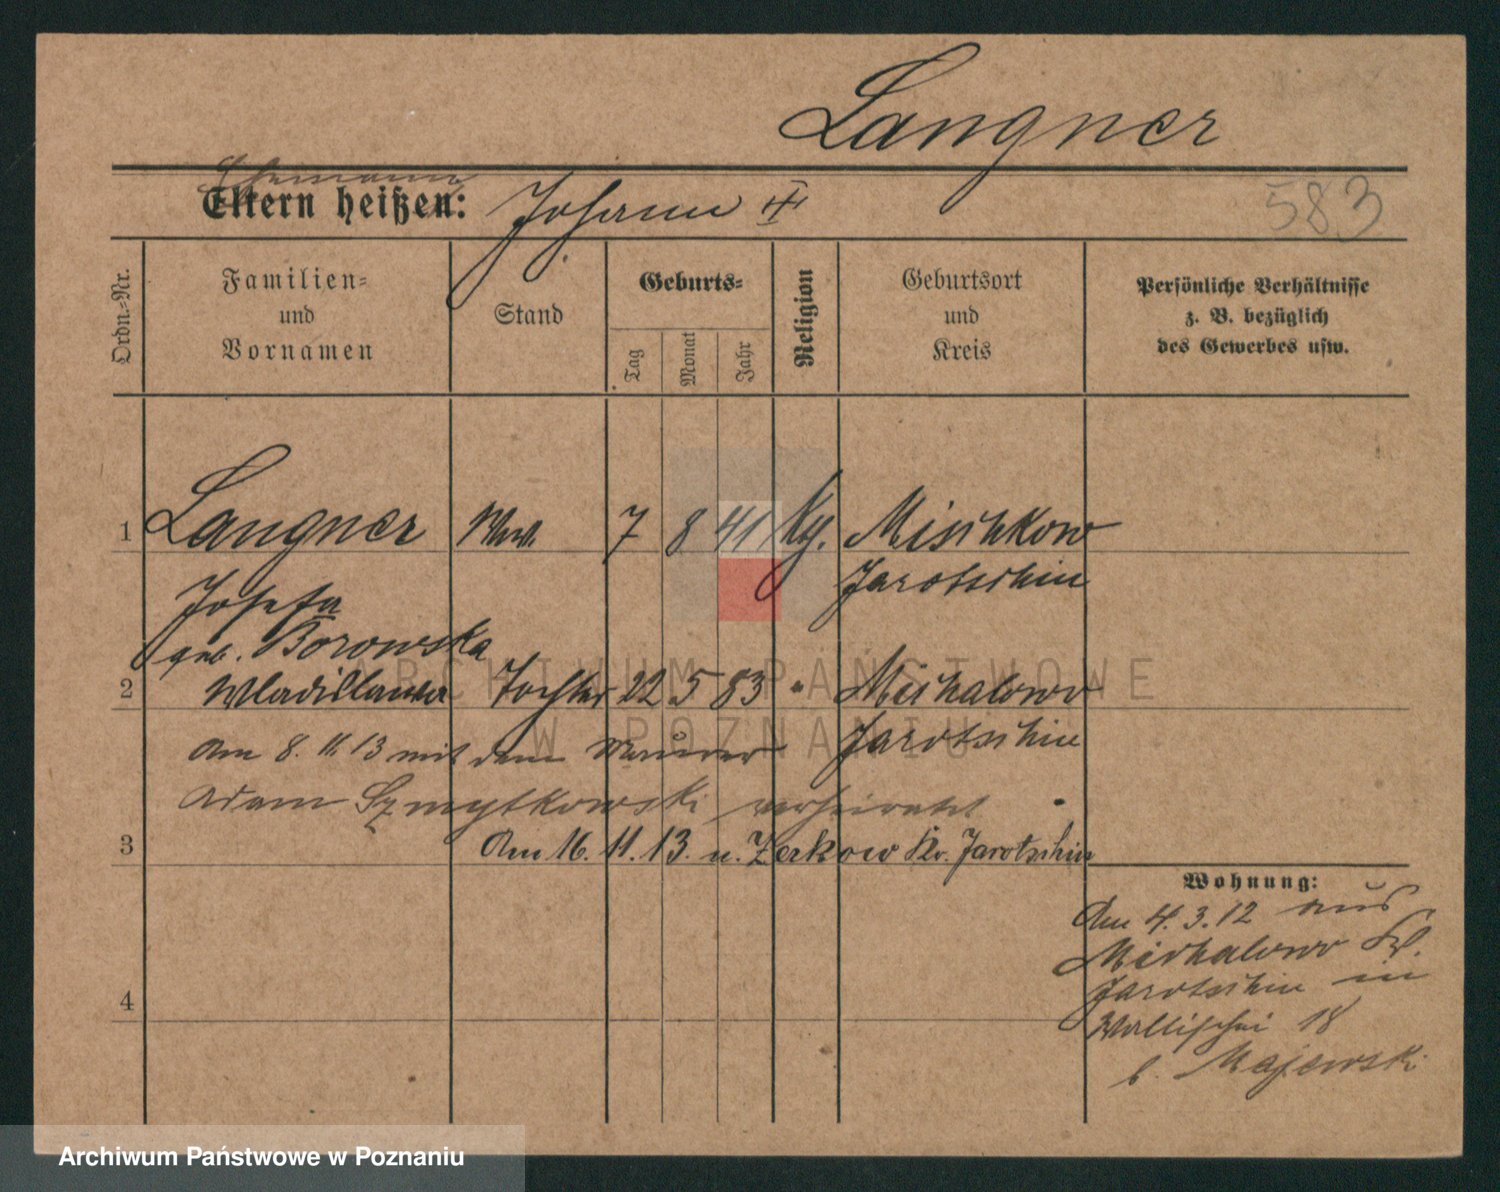 Langner
Ehemann
Eltern heißen: Johann
583
Ordn.-Nr.
Familien-
und
Vornamen
Stand
Geburts-
Tag
Monat
Jahr
Religion
Geburtsort
und
Kreis
Persönliche Verhältnisse
z. B. bezüglich
des Gewerbes usw.
1 Langner Wwe. 7 8 41 Misihkow
Jarotschin
Josefa
geb. Borowska
2 Wladislawa Tochter 22 5 83 " Michalowo
Jarotschin
Am 8. 11. 13 mit dem Maurer
Adam Szmytkowski verheiratet
3 Am 16. 11. 13. n. Zerkow Kr. Jarotschin
Wohnung:
Am 4. 3. 12 aus
Michalowo Kr.
Jarotschin in
Wallischei 18
b. Majewski
4
ARCHIWUM PAŃSTWOWE
W POZNANIU
Archiwum Państwowe w Poznaniu